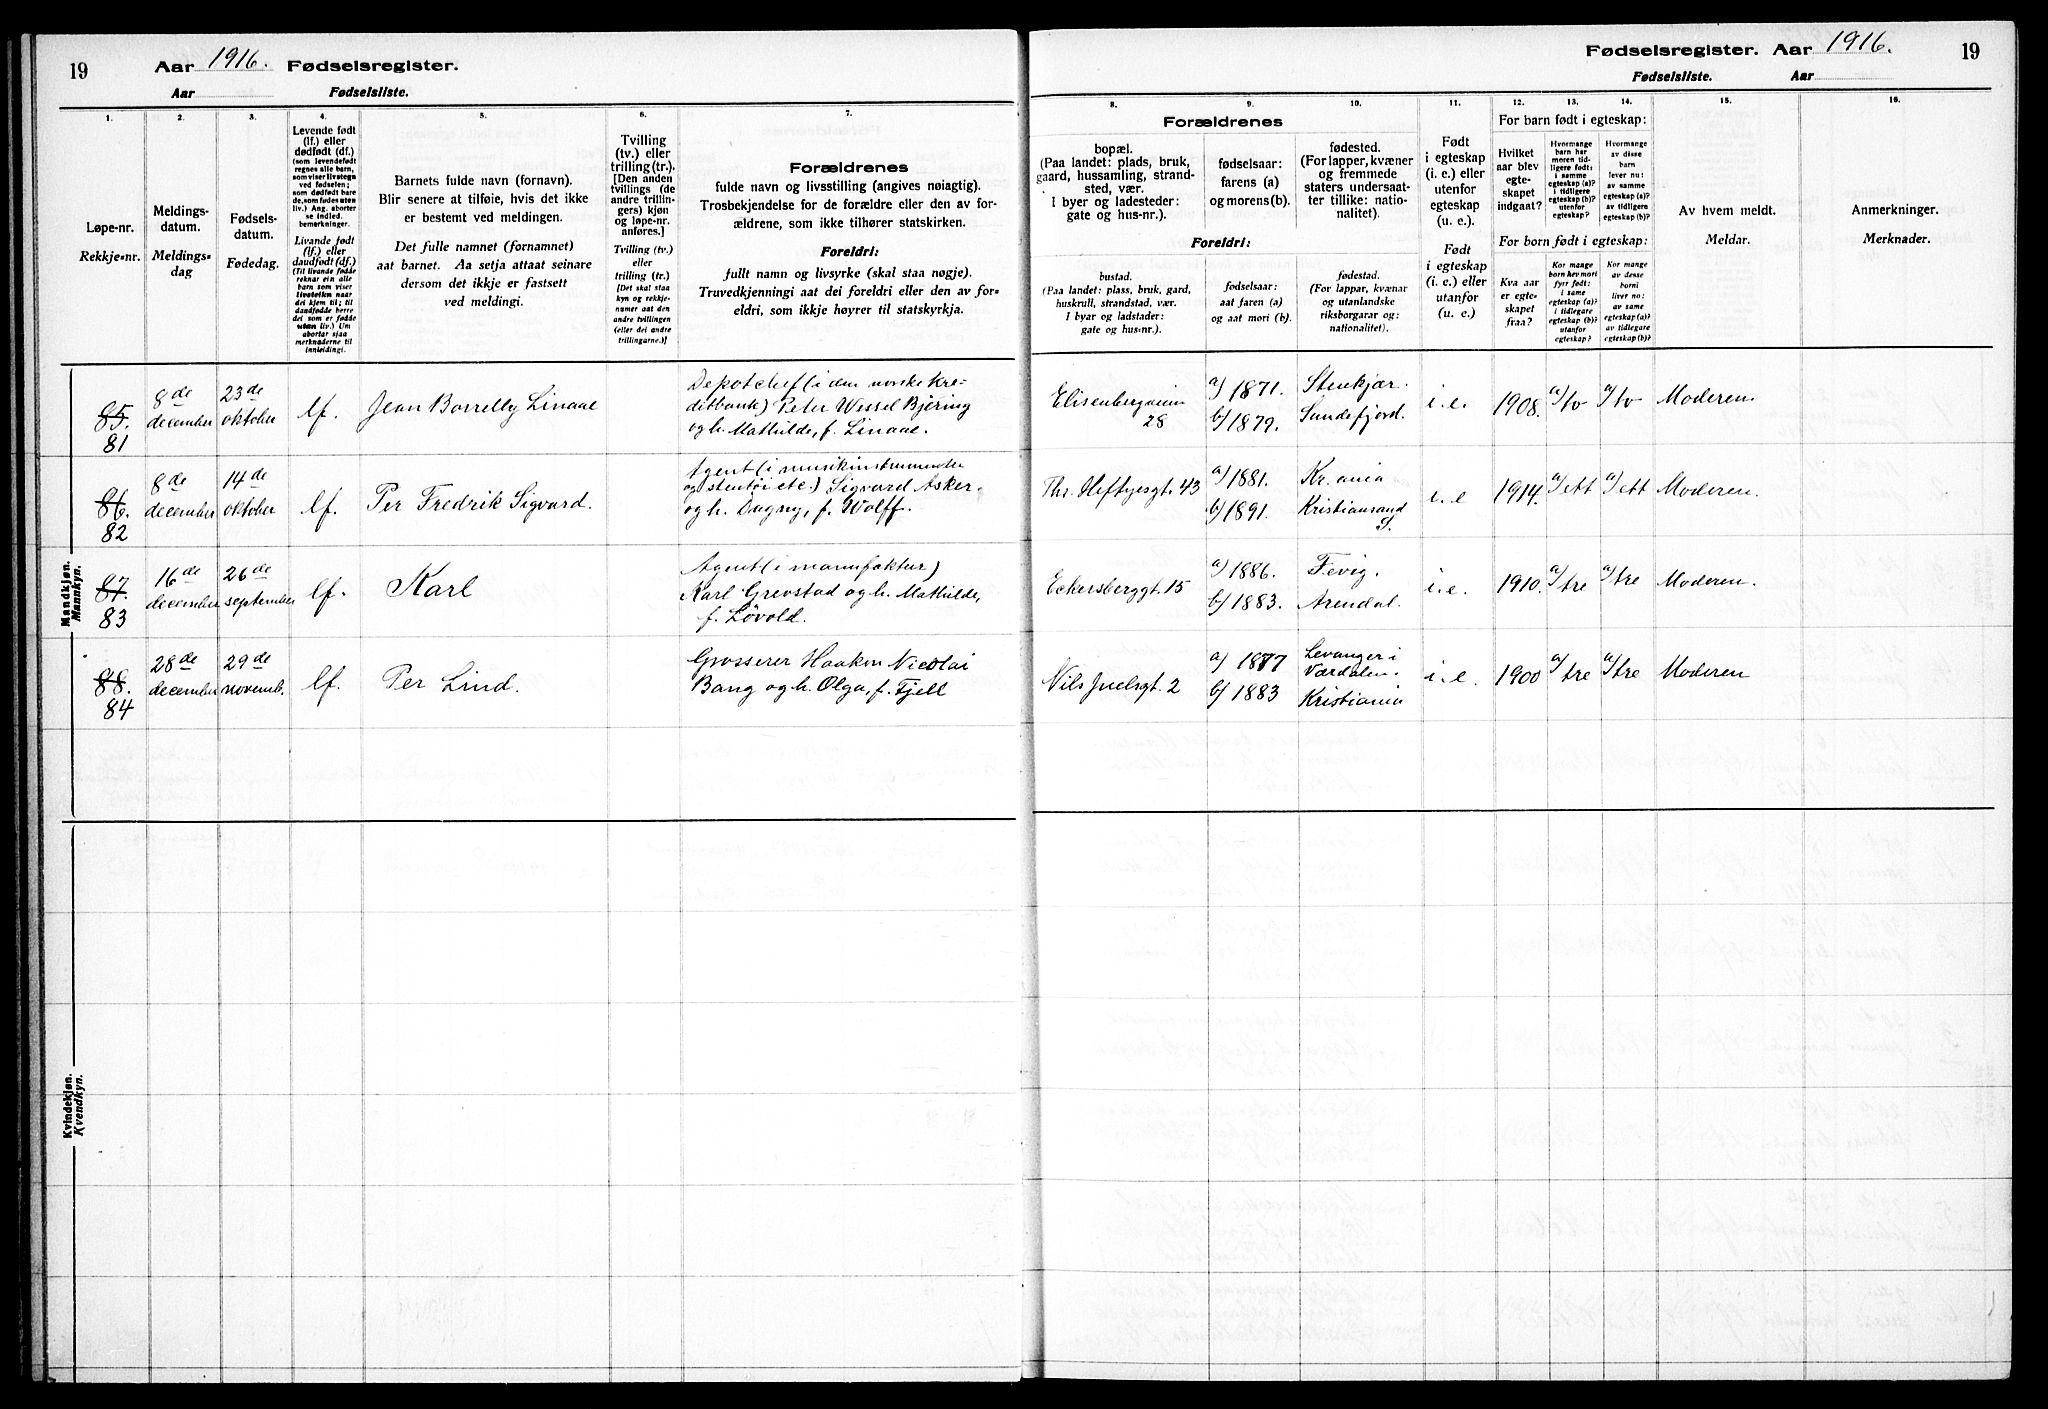 19
Aar 1916. Fødselsregister.
Aar Fødselsliste.
1.
Løpe-nr.
Rekkje-nr.
2.
Meldings-
datum.
Meldings-
dag
3.
Fødsels-
datum.
Fødedag.
4.
Levende født
(lf.) eller
dødfødt (df.)
(som levendefødt
regnes alle barn,
som viser livstegn
ved fødselen;
som dødfødt bare
de, som fødes uten
liv.) Ang. aborter
se indled.
bemerkninger.
Livande født
(lf.) eller
daudfødt (df.)
(Til livande fødde
reknar ein alle
barn som viser
livsteikn naar
dei kjem til; til
daudfødde berre
dei som er fødde
utan liv.) Um
abortar sjaa
merknaderne til
innleidingi.
5.
Barnets fulde navn (fornavn).
Blir senere at tilføie, hvis det ikke
er bestemt ved meldingen.
Det fulle namnet (fornamnet)
aat barnet. Aa setja attaat seinare
dersom det ikkje er fastsett
ved meldingi.
6.
Tvilling
(tv.) eller
trilling (tr.).
[Den anden
tvillings (de
andre trillin-
gers) kjøn
og løpe-nr.
anføres.]
Tvilling (tv.)
eller
trilling (tr.)
[Det skal staa
kyn og rekkje-
numer aat den
andre tvillingen
(eller dei andre
trillingarne.)]
7.
Forældrenes
fulde navn og livsstilling (angives nøiagtig).
Trosbekjendelse for de forældre eller den av for-
ældrene, som ikke tilhører statskirken.
Foreldri:
fullt namn og livsyrke (skal staa nøgje).
Truvedkjenningi aat dei foreldri eller den av for-
eldri, som ikkje høyrer til statskyrkja.
Mandkjøn.
Mannkyn.
85.
81
8de
december
23de
oktober
lf.
Jean Borrelly Linaae
Depotchef (i den norske Kre-
ditbank) Peter Wessel Bjering
og h. Mathilde, f. Linaae.
86.
82
8de
december
14de
oktober
lf.
Per Fredrik Sigvard.
Agent (i musikinstrumenter
og stentøi etc.) Sigvard Asker
og h. Dagny, f. Wolff.
87.
83
16de
december
26de
september
lf.
Karl
Agent (i manufaktur)
Karl Grevstad og h. Mathilde,
f. Løvold.
88.
84
28de
december
29de
novemb.
lf.
Per Lind.
Grosserer Haakon Nicolai
Bang og h. Olga, f. Fjell
Kvindekjøn.
Kvendkyn.
Fødselsregister. Aar 1916. 19
Fødselsliste. Aar
8.
9.
10.
Forældrenes
bopæl.
(Paa landet: plads, bruk,
gaard, hussamling, strand-
sted, vær.
I byer og ladesteder:
gate og hus-nr.).
fødselsaar:
farens (a)
og morens (b).
fødested.
(For lapper, kvæner
og fremmede
staters undersaat-
ter tillike: natio-
nalitet).
Foreldri:
bustad.
(Paa landet: plass, bruk, gard,
huskrull, strandstad, vær.
I byar og ladstader:
gate og hus-nr.).
fødselsaar:
aat faren (a)
og aat mori (b).
fødestad.
(For lappar, kvænar
og utanlandske
riksborgarar og:
nationalitet).
11.
Født
i egteskap
(i. e.) eller
utenfor
egteskap
(u. e.).
Født
i egteskap
(i. e.) eller
utanfor
(u. e.)
12.
13.
14.
For barn født i egteskap:
Hvilket
aar blev
egte-
skapet
indgaat?
Hvormange
barn har
moren tid-
ligere født:
i samme
egteskap (a)?
i tidligere
egteskap (b)?
utenfor
egteskap?
Hvormange
av disse
barn
lever nu:
av samme
egteskap (a)?
av tidligere
egteskap (b)?
For born født i egteskap:
Kva aar
er egte-
skapet
fraa?
Kor mange
born hev mori
fyrr født:
i same
egteskap (a)?
i tidlegare
egteskap (b)?
utanfor
egteskap?
Kor mange
av desse
borni
liver no:
av same
egteskap (a)?
av tidlegare
egteskap (b)?
15.
Av hvem meldt.
Meldar.
16.
Anmerkninger.
Merknader.
Elisenbergveien
28
a) 1871.
b) 1879.
Stenkjær.
Sandefjord.
i. e.
1908.
a/ to
a/ to
Moderen.
Thr. Heftyesgt. 43
a) 1881.
b) 1891.
Kr.ania
Kristiansand
S.
i. e
1914.
a/ ett
a/ ett
Moderen.
Eckersberggt. 15
a) 1886.
b) 1883.
Fevig.
Arendal.
i. e.
1910.
a/ tre
a/ tre
Moderen.
Nils Juelsgt. 2
a) 1877
b) 1883
Levanger i
Værdalen.
Kristiania
i. e.
1900
a/ tre
a/ tre
Moderen